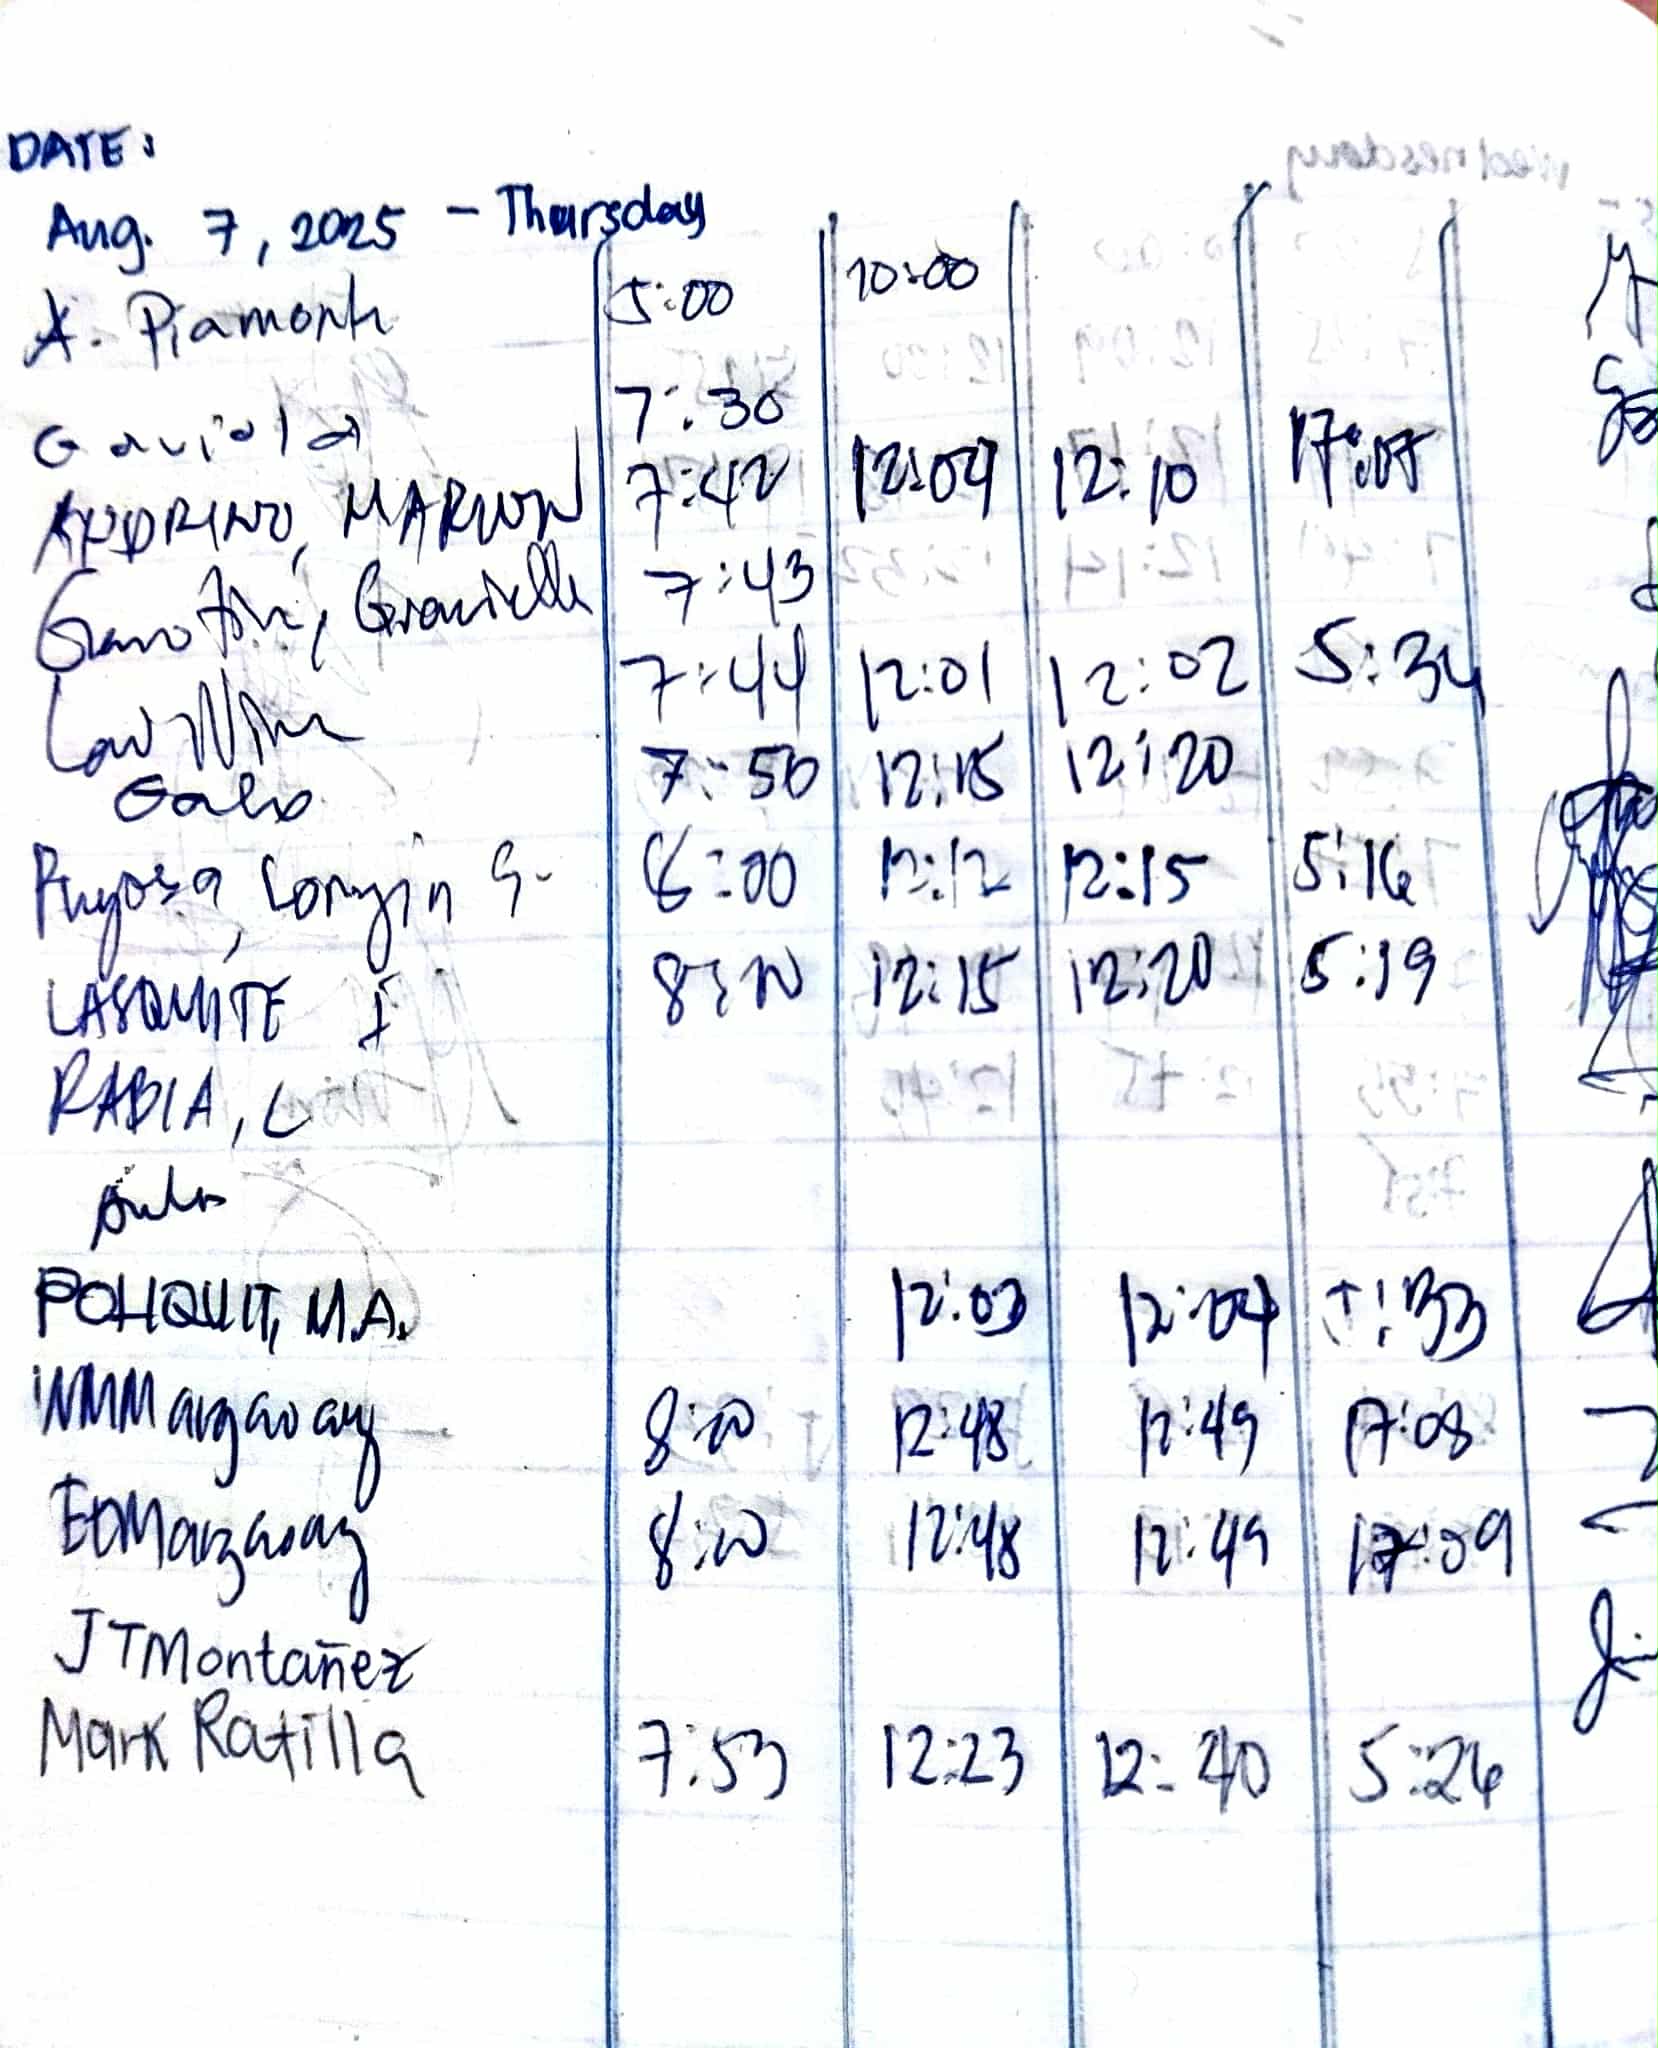 DATE:
Aug. 7, 2025 - Thursday
A. Piamonte 5:00 10:00
Gaviola 7:30
MARLON 7:42 12:09 12:10
7:43
7:44 12:01 12:02 5:34
Galo 7:50 12:15 12:20
Longin G. 8:00 12:12 12:15 5:16
LASQUITE F 8:00 12:15 12:20 5:19
RABIA, C
POHQUIT, M.A. 12:03 12:04 5:33
8:00 12:48 12:49 17:08
8:00 12:48 12:49 17:09
JTMontañez
Mark Ratilla 7:53 12:23 12:40 5:26